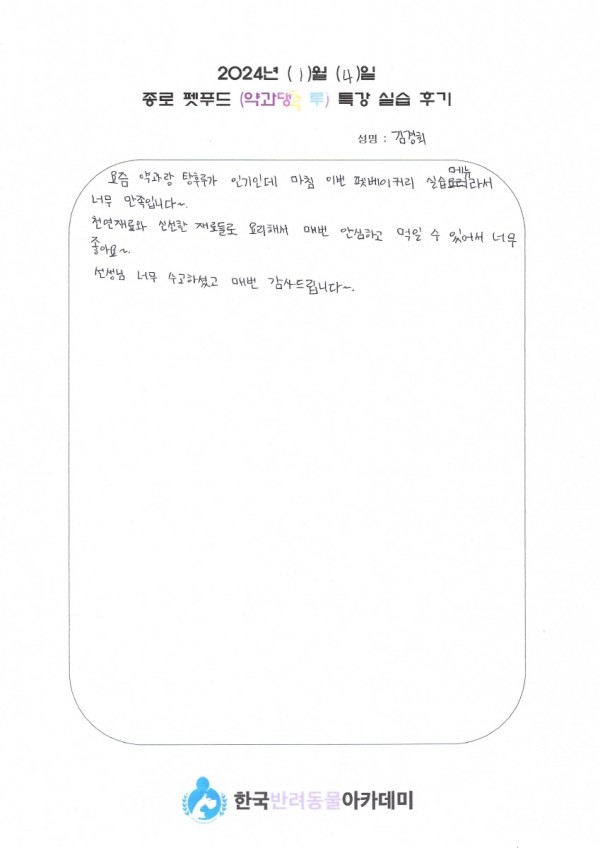 2024년 (1)월 (4)일
종로 펫푸드 (약과댕후루) 특강 실습 후기
성명 : 김경희
메뉴
요즘 약과랑 탕후루가 인기인데 마침 이번 펫베이커리 실습요리라서
너무 만족입니다~.
천연재료와 신선한 재료들로 요리해서 매번 안심하고 먹일 수 있어서 너무
좋아요~.
선생님 너무 수고하셨고 매번 감사드립니다~.
한국반려동물아카데미